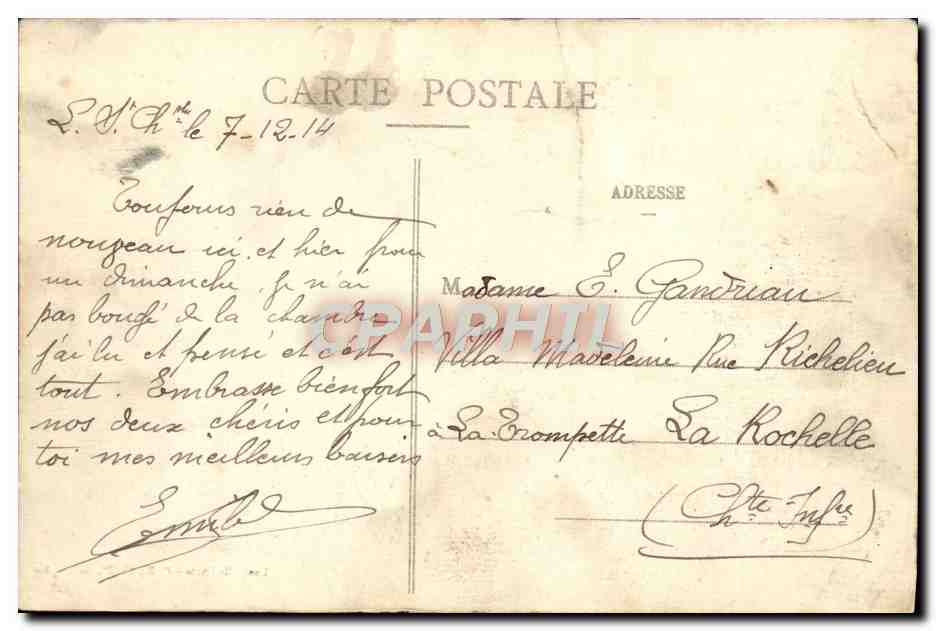 CARTE POSTALE
L. St. Ch le 7-12-14
Toujours rien de
nouveau ici, et hier pour
un dimanche, je n'ai
pas bougé de la chambre
j'ai lu et pensé et c'est
tout. Embrasse bien fort
nos deux chéris et pour
toi mes meilleurs baisers
Emile
ADRESSE
Madame E. Gandriau
Villa Madeleine Rue Richelieu
à La Trompette La Rochelle
(Chte-Infre)
CPAPHIL